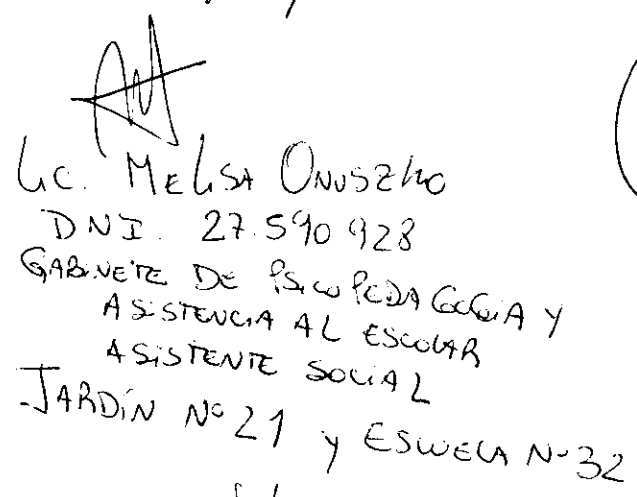 Lic. MELISA ONUSZKO
DNI. 27.590 928
GABINETE DE PSICOPEDAGOGIA Y
ASISTENCIA AL ESCOLAR
ASISTENTE SOCIAL
JARDÍN Nº 21 y ESCUELA Nº 32